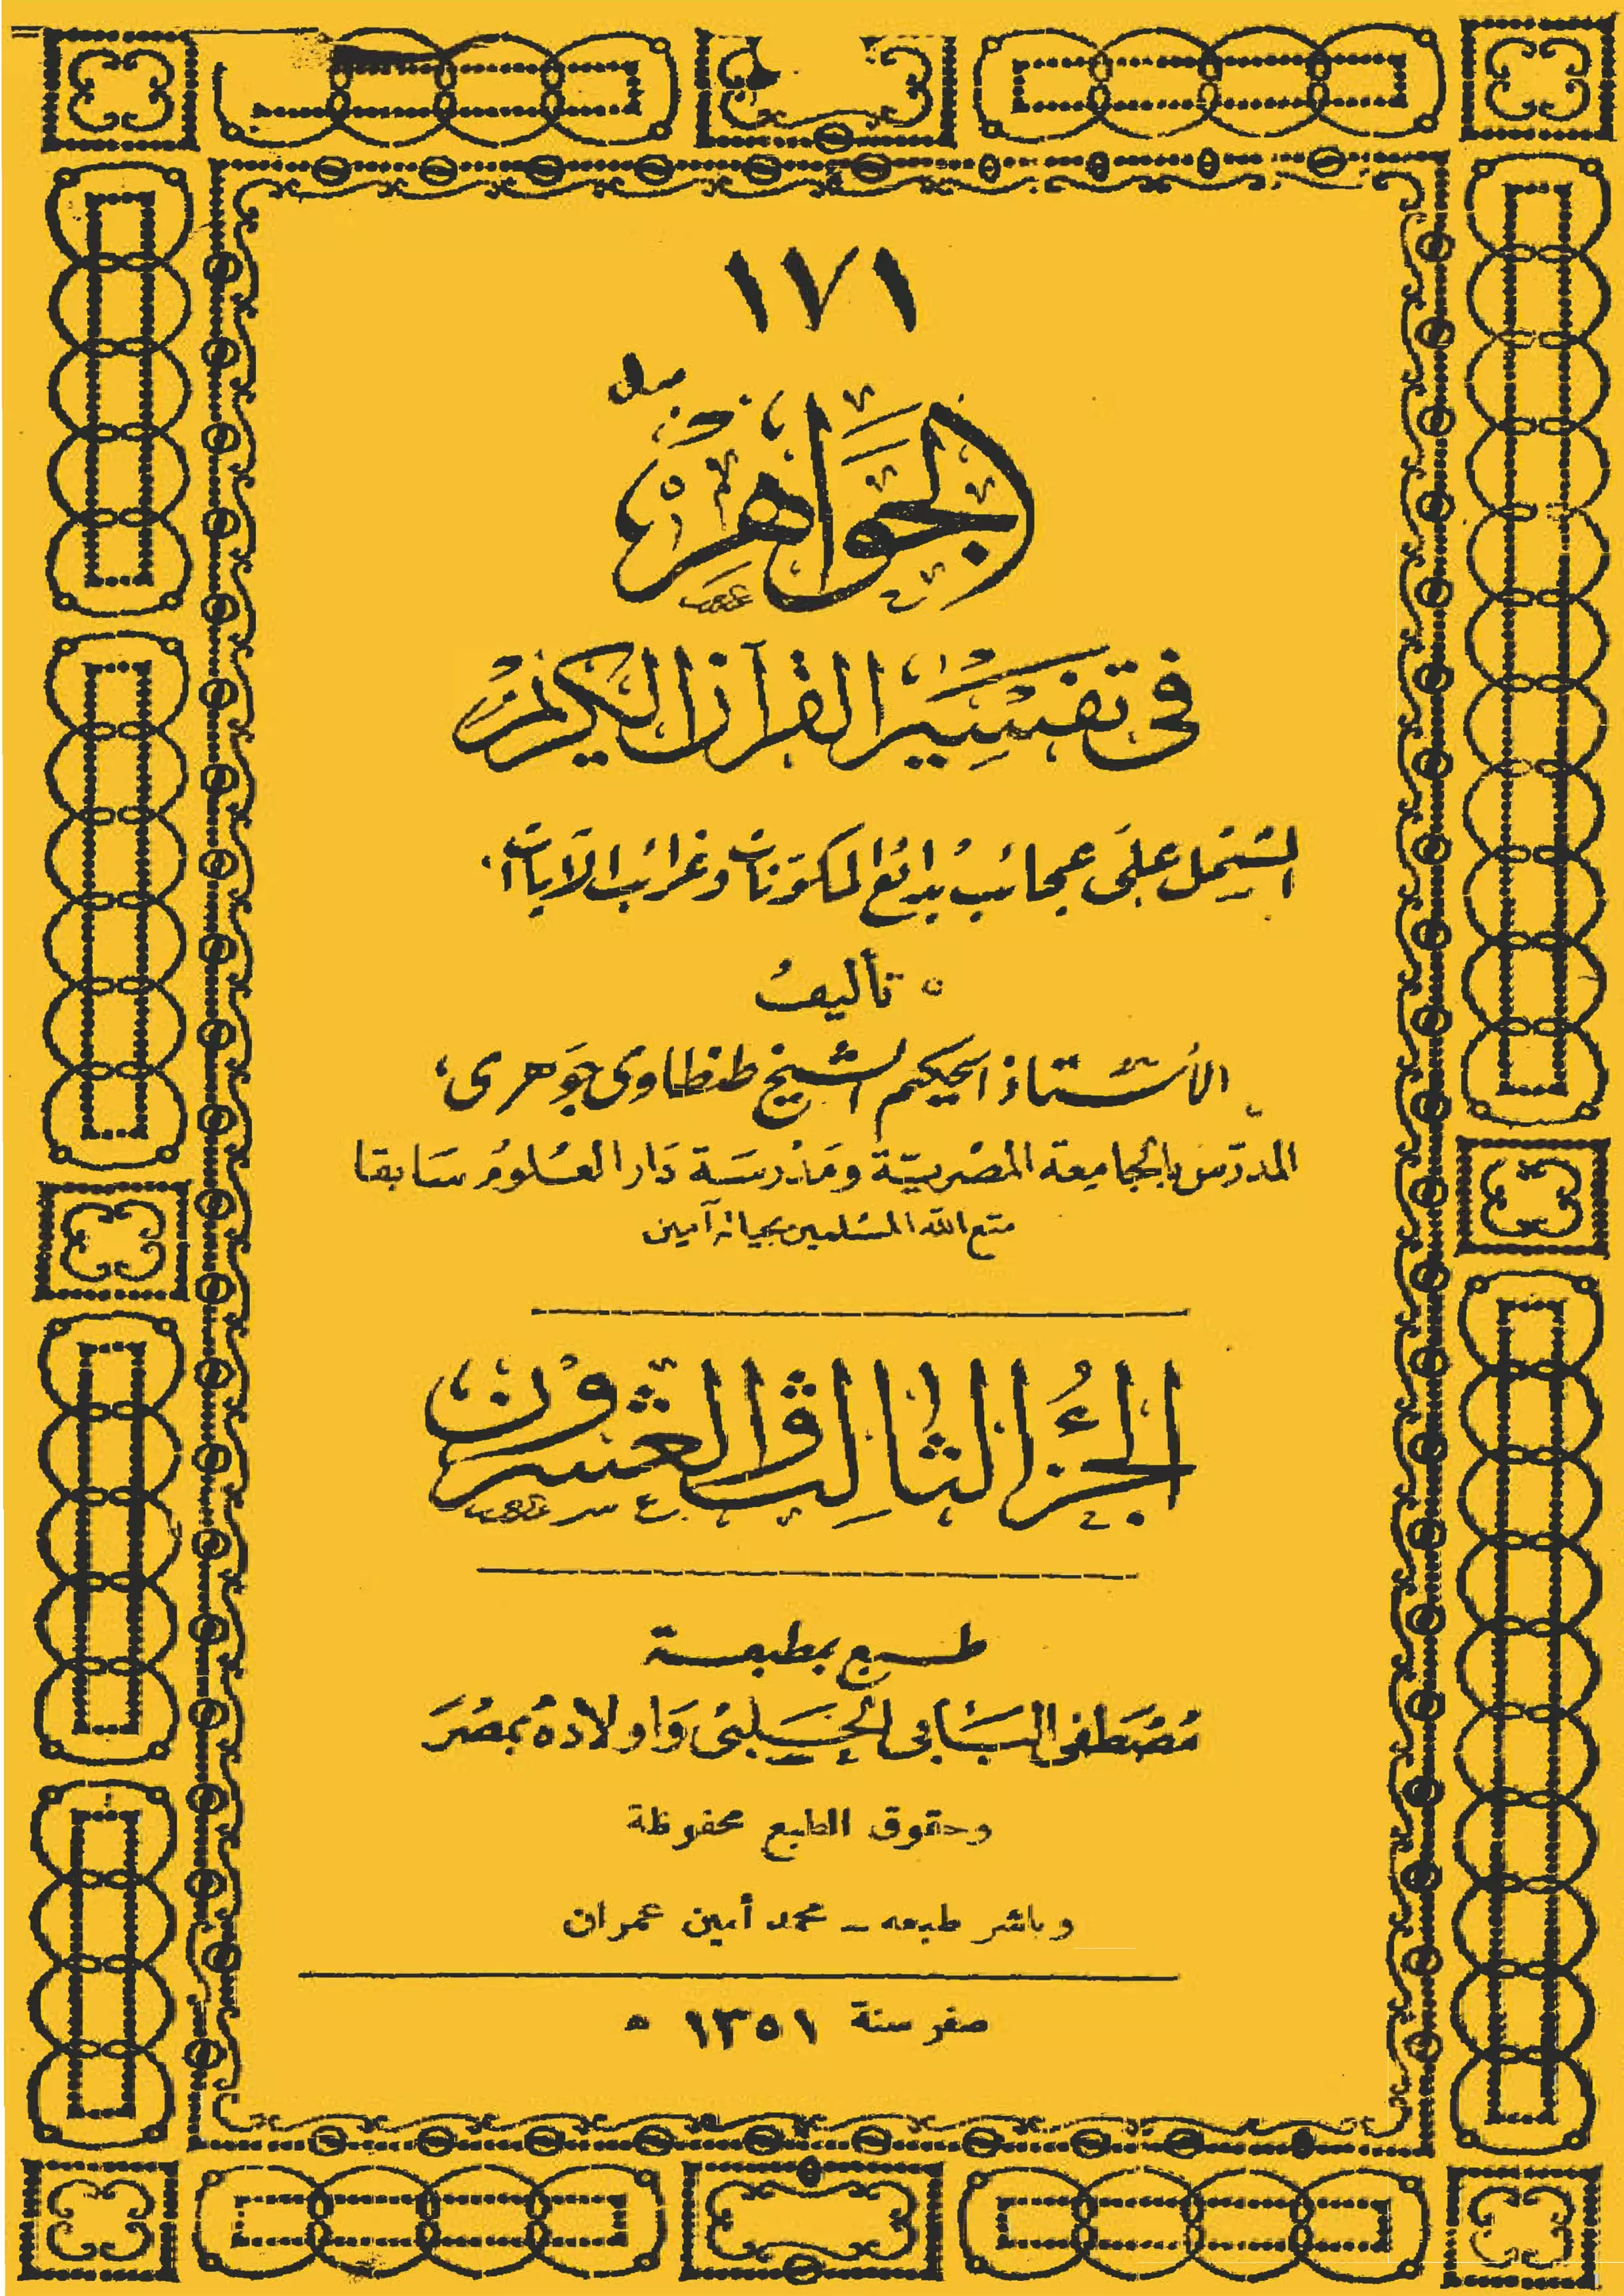 ١٧١
الجواهر
في تفسير القرآن الكريم
المشتمل على عجائب بدائع المكونات وغرائب الآيات
تأليف
الأستاذ الحكيم الشيخ طنطاوى جوهرى
المدرّس بالجامعة المصرية ومدرسة دار العلوم سابقا
متع الله المسلمين بحياته آمين
الجزء الثالث والعشرون
طبع بمطبعة
مصطفى البابى الحلبى وأولاده بمصر
وحقوق الطبع محفوظة
وباشر طبعه ــ محمد أمين عمران
صفر سنة ١٣٥١ ه